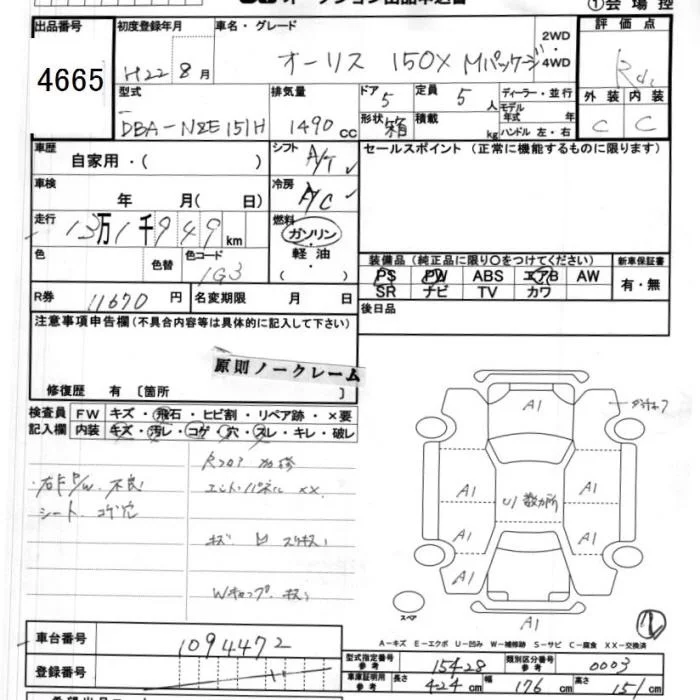 ①会場控
出品番号 初度登録年月 車名・グレード 評価点
4665 H22 8月 オーリス 150X Mパッケージ 2WD・4WD
型式 排気量 ドア 5 定員 5人 ディーラー・並行 外装 内装
DBA-NZE151H 1490 cc 形状 箱 積載 kg モデル年式 年 C C
ハンドル 左・右
車歴 自家用・( ) シフト A/T セールスポイント (正常に機能するものに限ります)
車検 年 月( 日) 冷房 A/C
走行 13万1千949km 燃料 ガソリン・軽油・( )
色 色替 色コード 1G3
装備品 (純正品に限り○をつけてください) 新車保証書
PS PW ABS エアB AW 有・無
SR ナビ TV カワ
R券 11670円 名変期限 月 日 後日品
注意事項申告欄(不具合内容等は具体的に記入して下さい)
原則ノークレーム
修復歴 有 [箇所 ]
検査員 FW キズ・飛石・ヒビ割・リペア跡・×要
記入欄 内装 キズ・汚レ・コゲ・穴・スレ・キレ・破レ
Rフロア 加修
右F P/W 不良
エンド・パネル XX
シート コゲ穴
A1
A1
A1
U1 数か所
A1
A1
A1
A1
A1
スペア
A-キズ E-エクボ U-凹み W-補修跡 S-サビ C-腐食 XX-交換済
車台番号 1094472
登録番号
型式指定番号 参考 15428 類別区分番号 参考 0003
車庫証明用 参考 長さ 424cm 幅 176cm 高さ 151cm